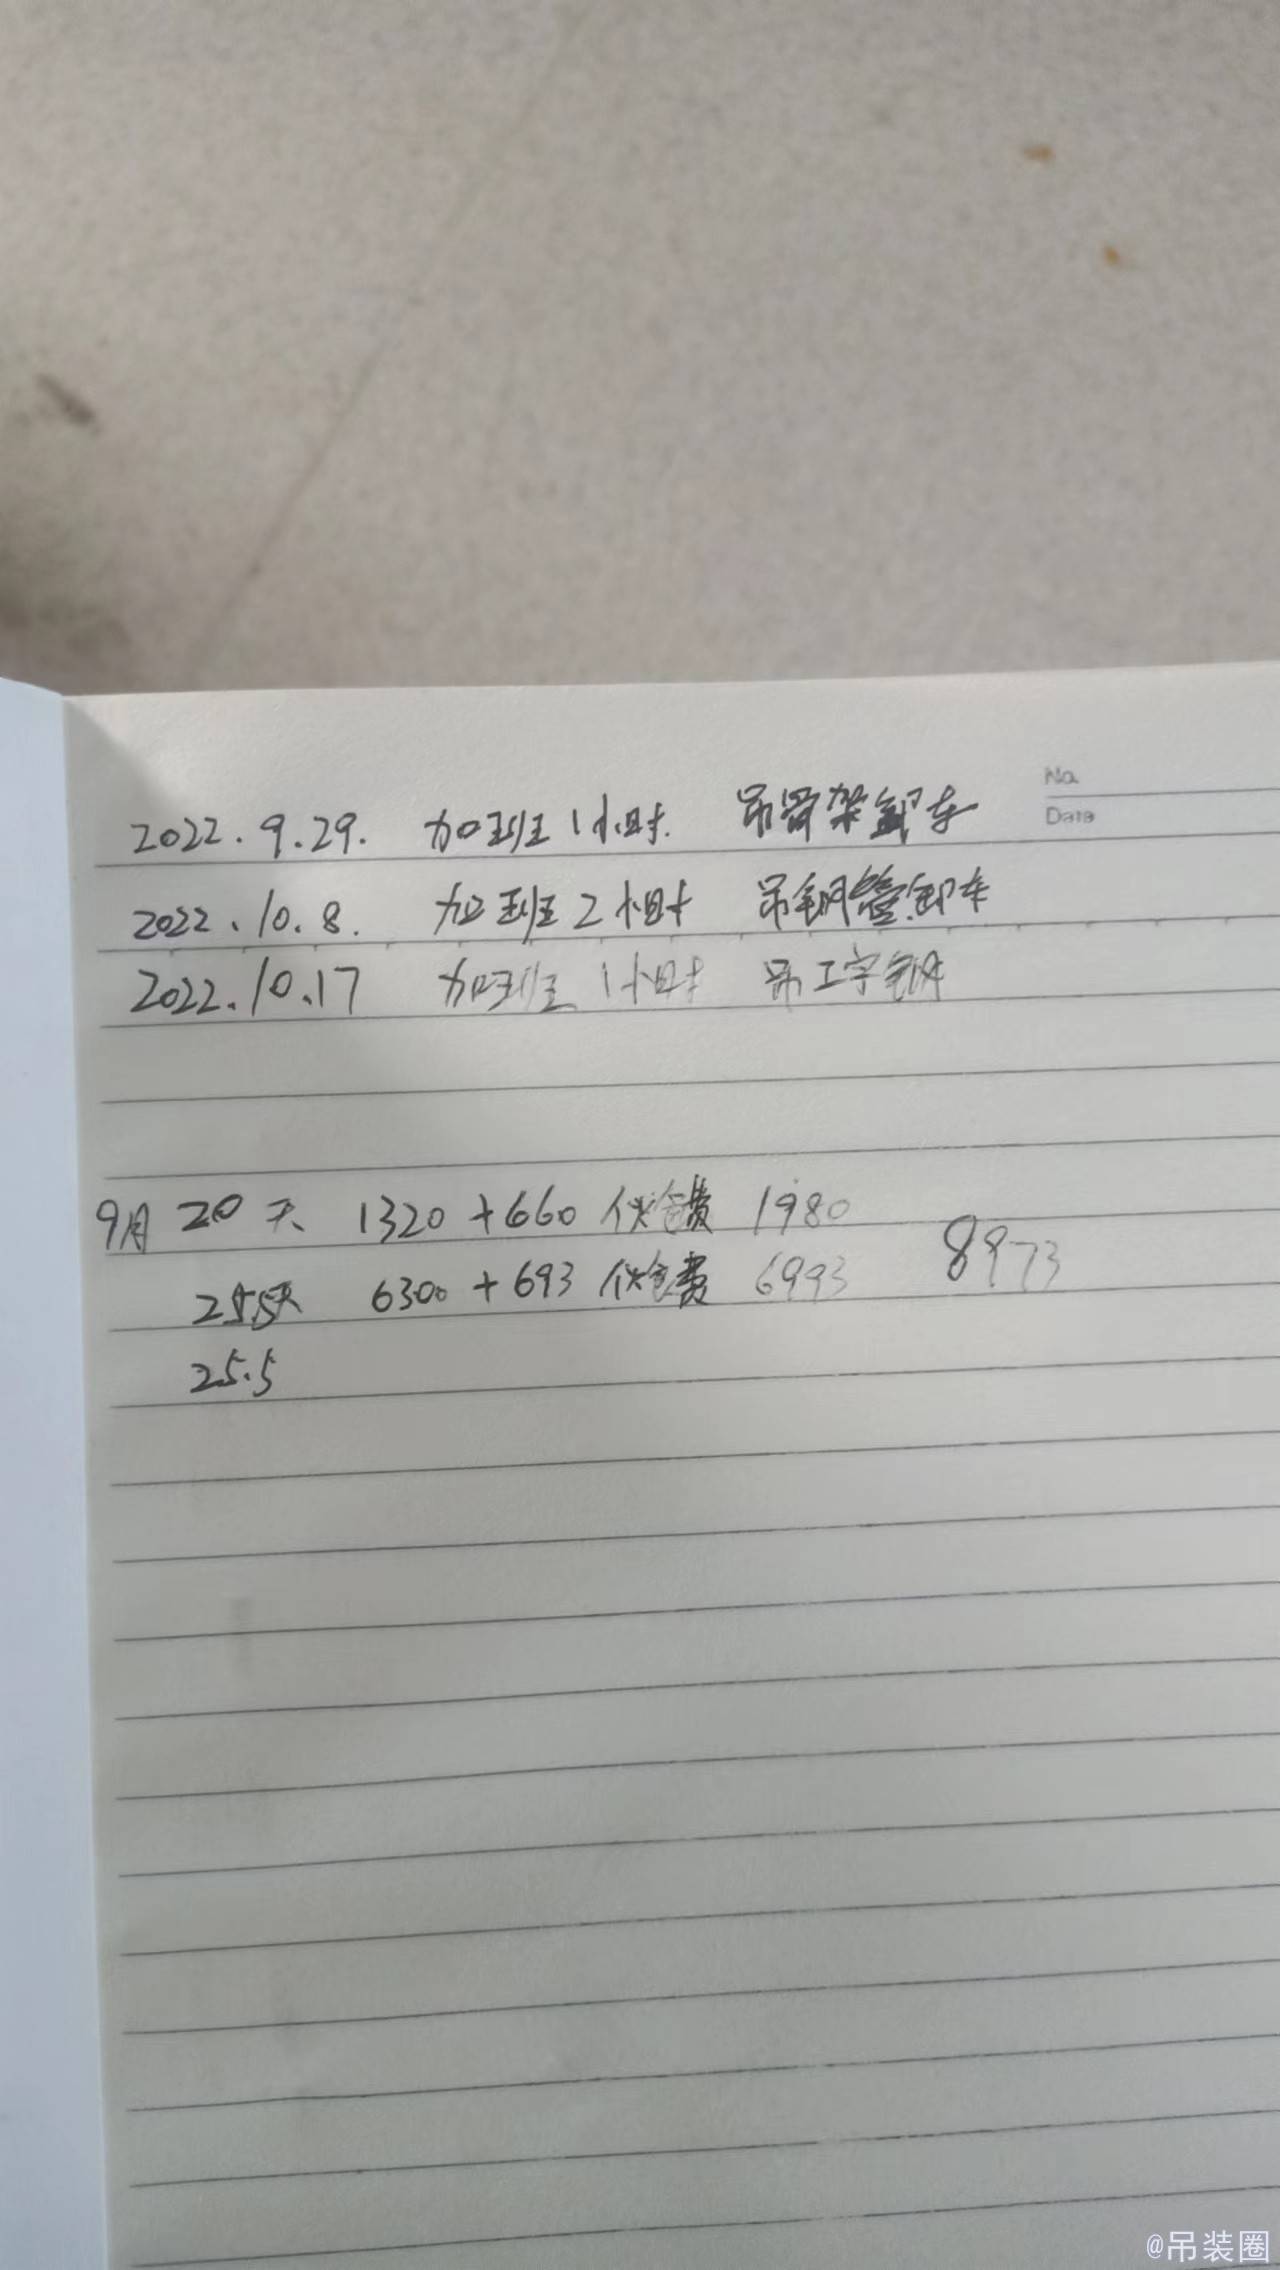 No.
Date
2022.9.29. 加班1小时. 吊骨架卸车
2022.10.8. 加班2小时 吊钢管卸车
2022.10.17 加班1小时 吊工字钢
9月 20天 1320+660伙食费 1980
8973
25.5天 6300+693伙食费 6993
25.5
@吊装圈